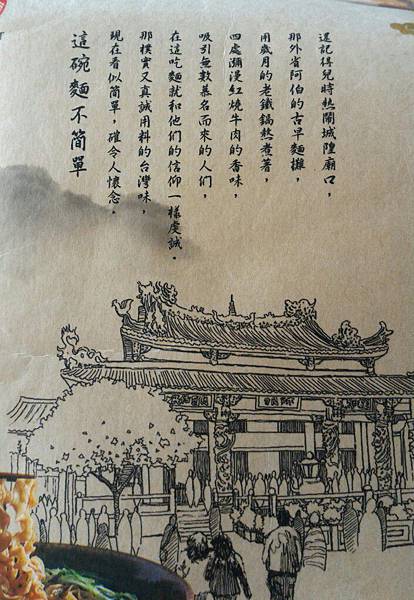 還記得兒時熱鬧城隍廟口，
那外省阿伯的古早麵攤，
用歲月的老鐵鍋熬煮著，
四處瀰漫紅燒牛肉的香味，
吸引無數慕名而來的人們，
在這吃麵就和他們的信仰一樣虔誠。
那樸實又真誠用料的台灣味，
現在看似簡單，確令人懷念。
這碗麵不簡單